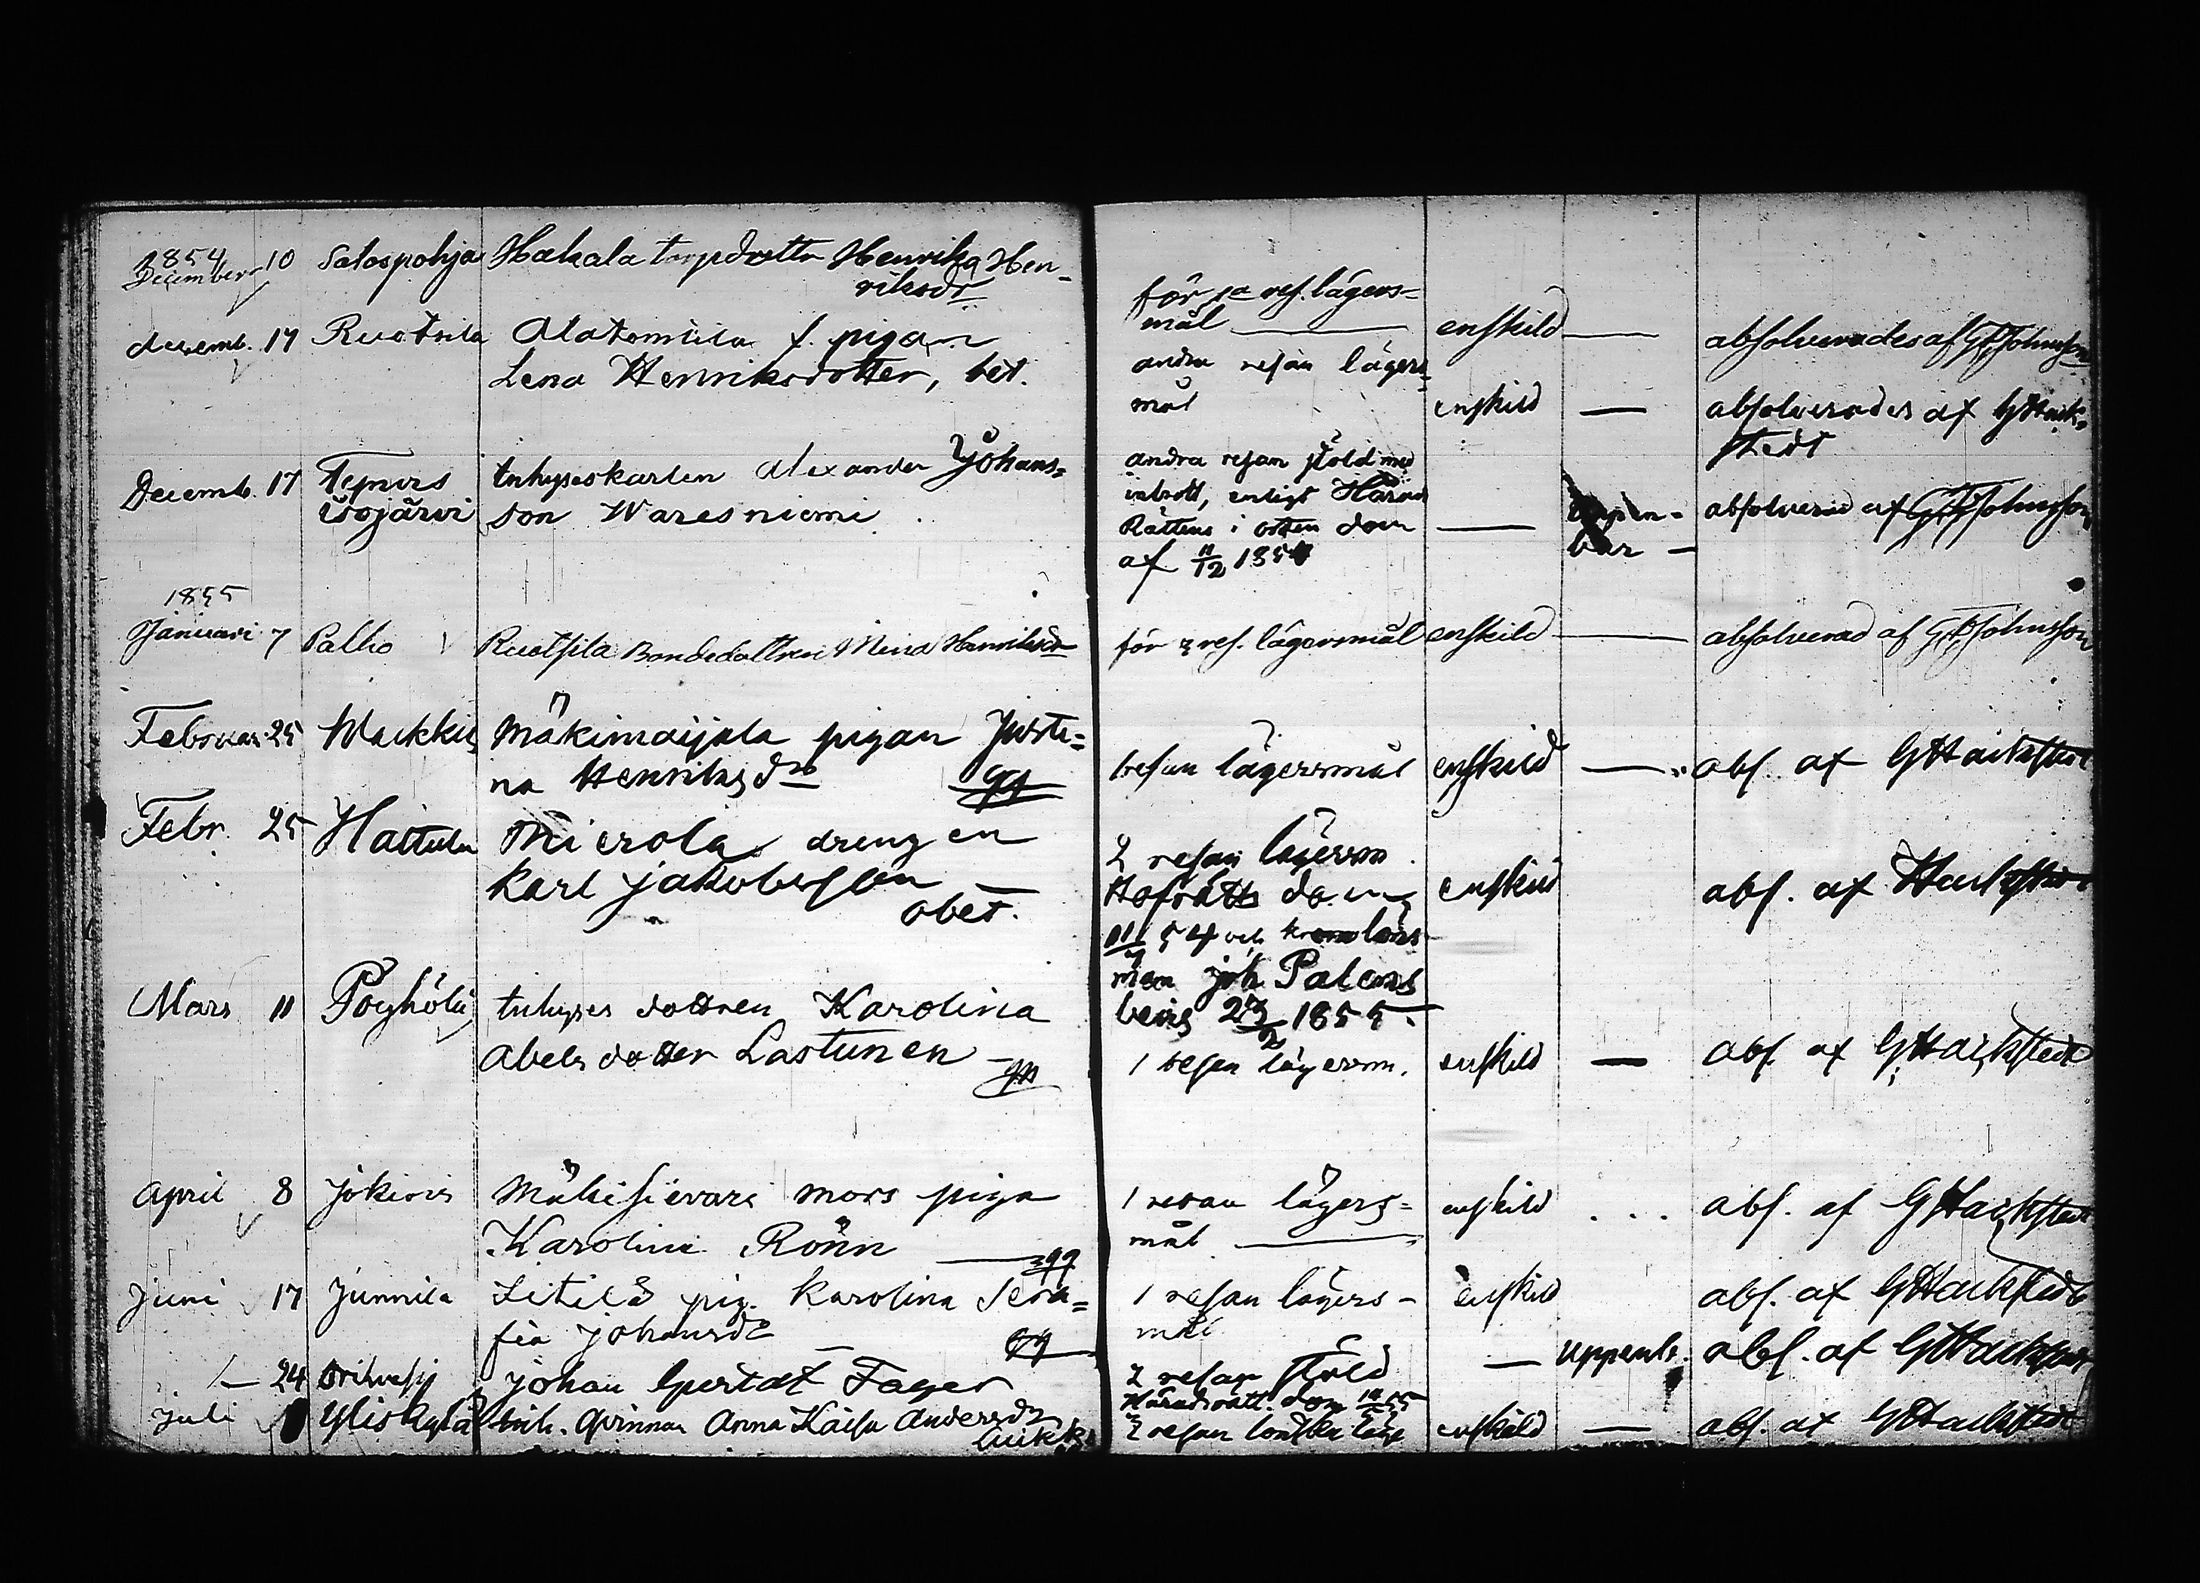 1854
December 10 Satospohja Hakala torpdottr Henrika Hen-
riksdr
för 1a res. lägers-
mål — enskild — absolverades af G Johnsson
decemb. 17 Ruotsila Alatomtila f. pigan
Lena Henriksdotter, bet.
andra resan lägers-
mål enskild — absolverades af GHack-
stedt
Decemb. 17
isojärvi
Inhyseskarlen Alexander Johans=
son Waresniemi
andra resan stöld med
inbrott, enligt Härads
Rättens i orten dom
af 11/12 1854
— uppen-
bar — absolverad af G Johnsson
1855
Januari 7 Palho Ruotsila Bondedottren Mina Henriksdr
för 2 res. lägersmål enskild — absolverad af G Johnsson
Februar 25 Mäkimaijala pigan Justi=
na Henriksdr
resan lägersmål enskild — abs. af GHackstedt
Febr. 25 Hattula drengen
Karl Jakobsson —
obet.
2 resan lägersm.
Hofrätts dom
54 och krono läns
man Joh Palens
bevis 23/2 1855.
enskild abs. af Hackstedt
Mars 11 Pöyhölä Inhyses dottren Karolina
Abels dotter Lastunen —
1 resan lägersm. enskild — abs. af GHackstedt
April 8 Jokiois Mäkisievari mors piga
Karolina Rönn —
1 resan lägers=
mål — enskild ... abs. af GHackstedt
Juni 17 Junnila pig. Karolina Sera=
fia Johansdr —
1 resan lägers-
mål enskild abs. af GHackstedt
— 24 Johan Gustaf Fager
2 resan stöld
Häradsrätt. dom
— uppenb. abs. af GHackstedt
Juli Yliskylä inh. qvinnan Anna Kaisa Andersdr
2 resan lönska läge enskild — abs. af GHackstedt